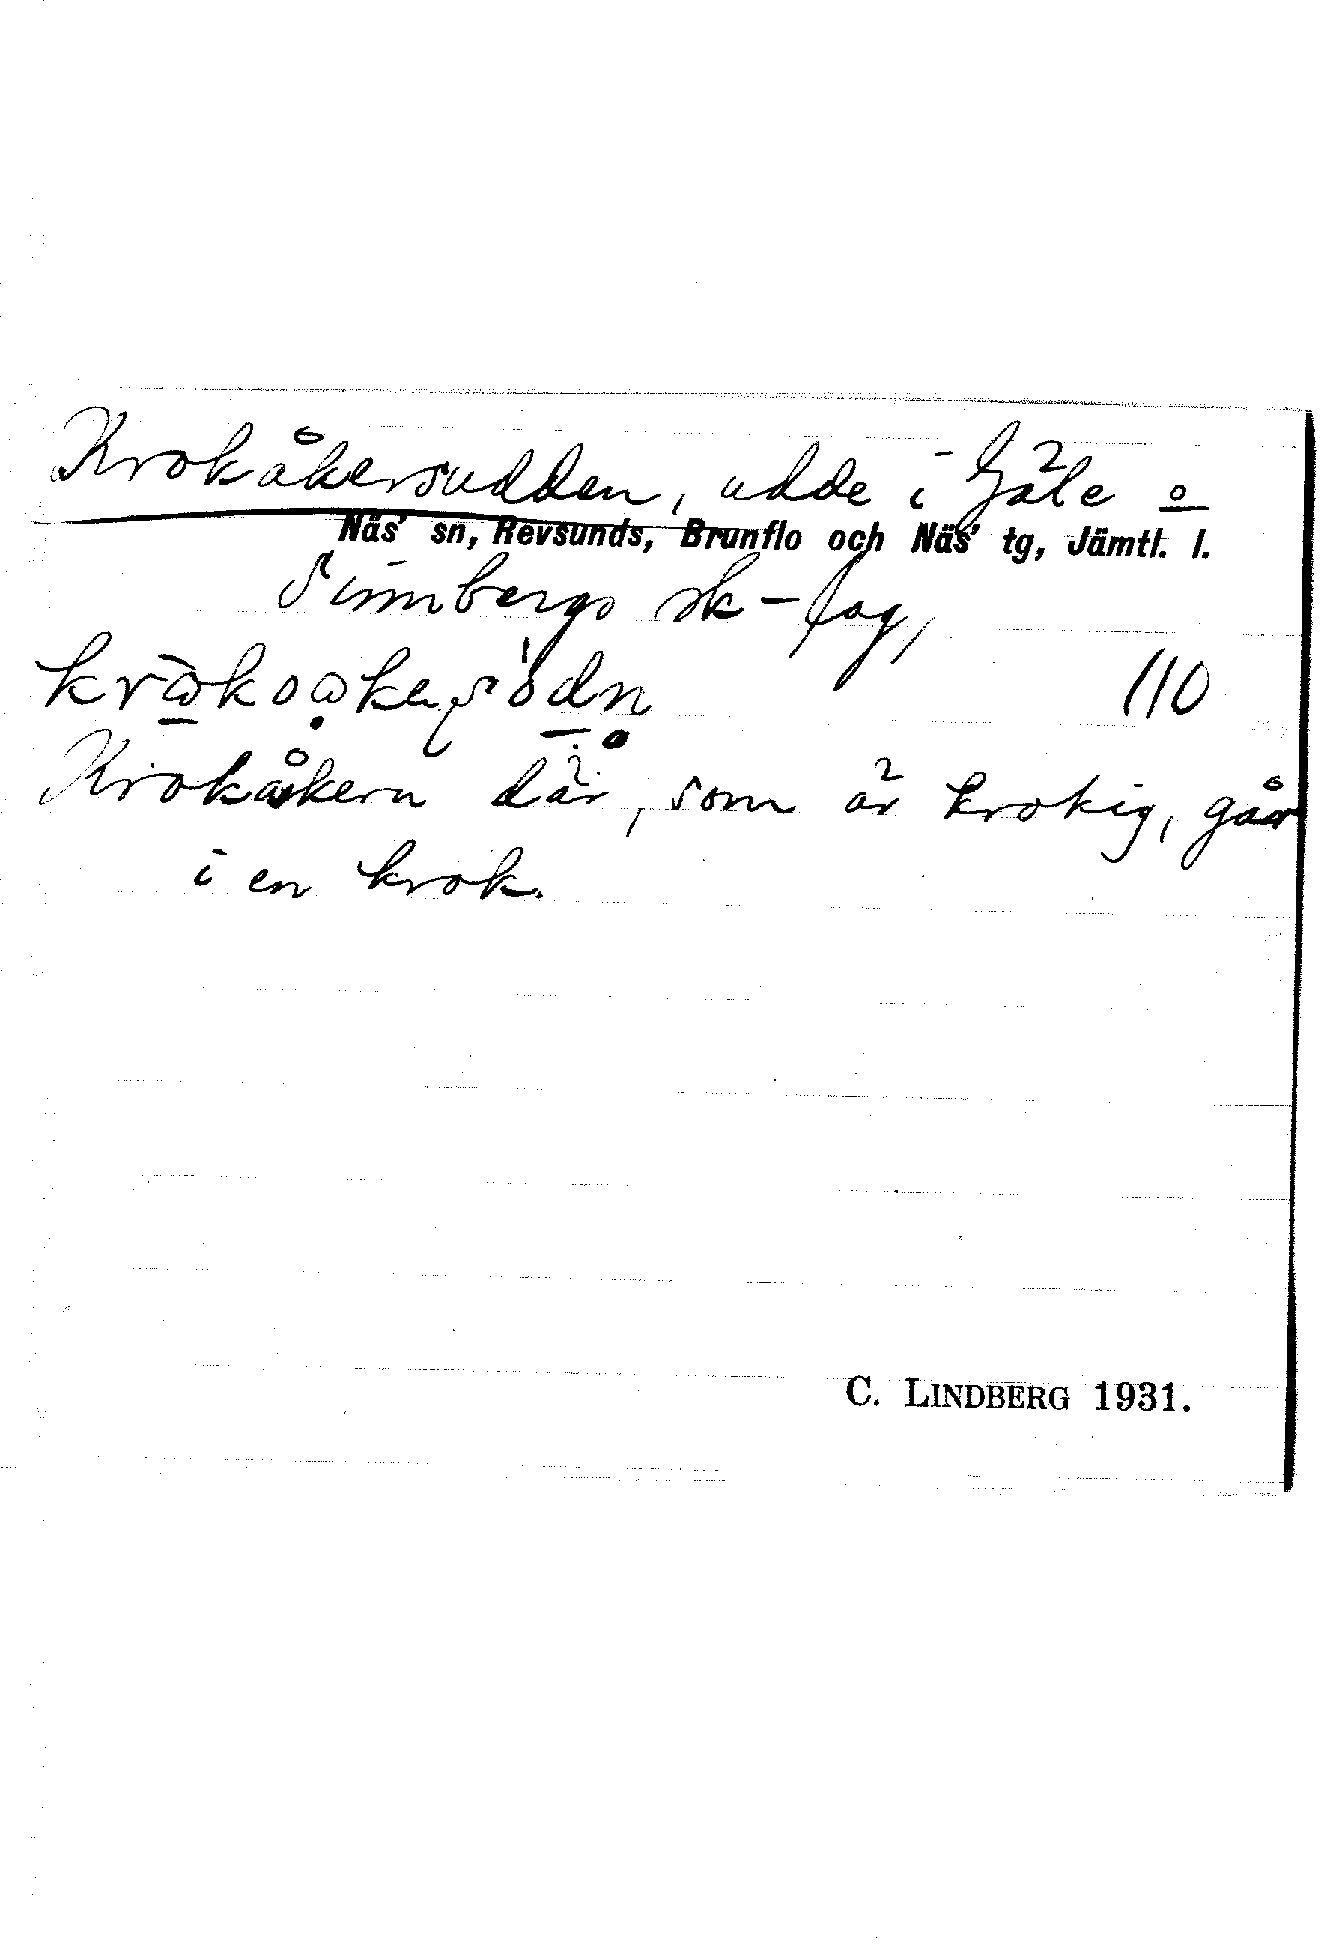 Krokåkersudden, udde i Gäle o
Näs' sn, Revsunds, Brunflo och Näs' tg, Jämtl. l.
sk-lag,
110
Krokåkern där, som är krokig, går
i en krok.
C. LINDBERG 1931.